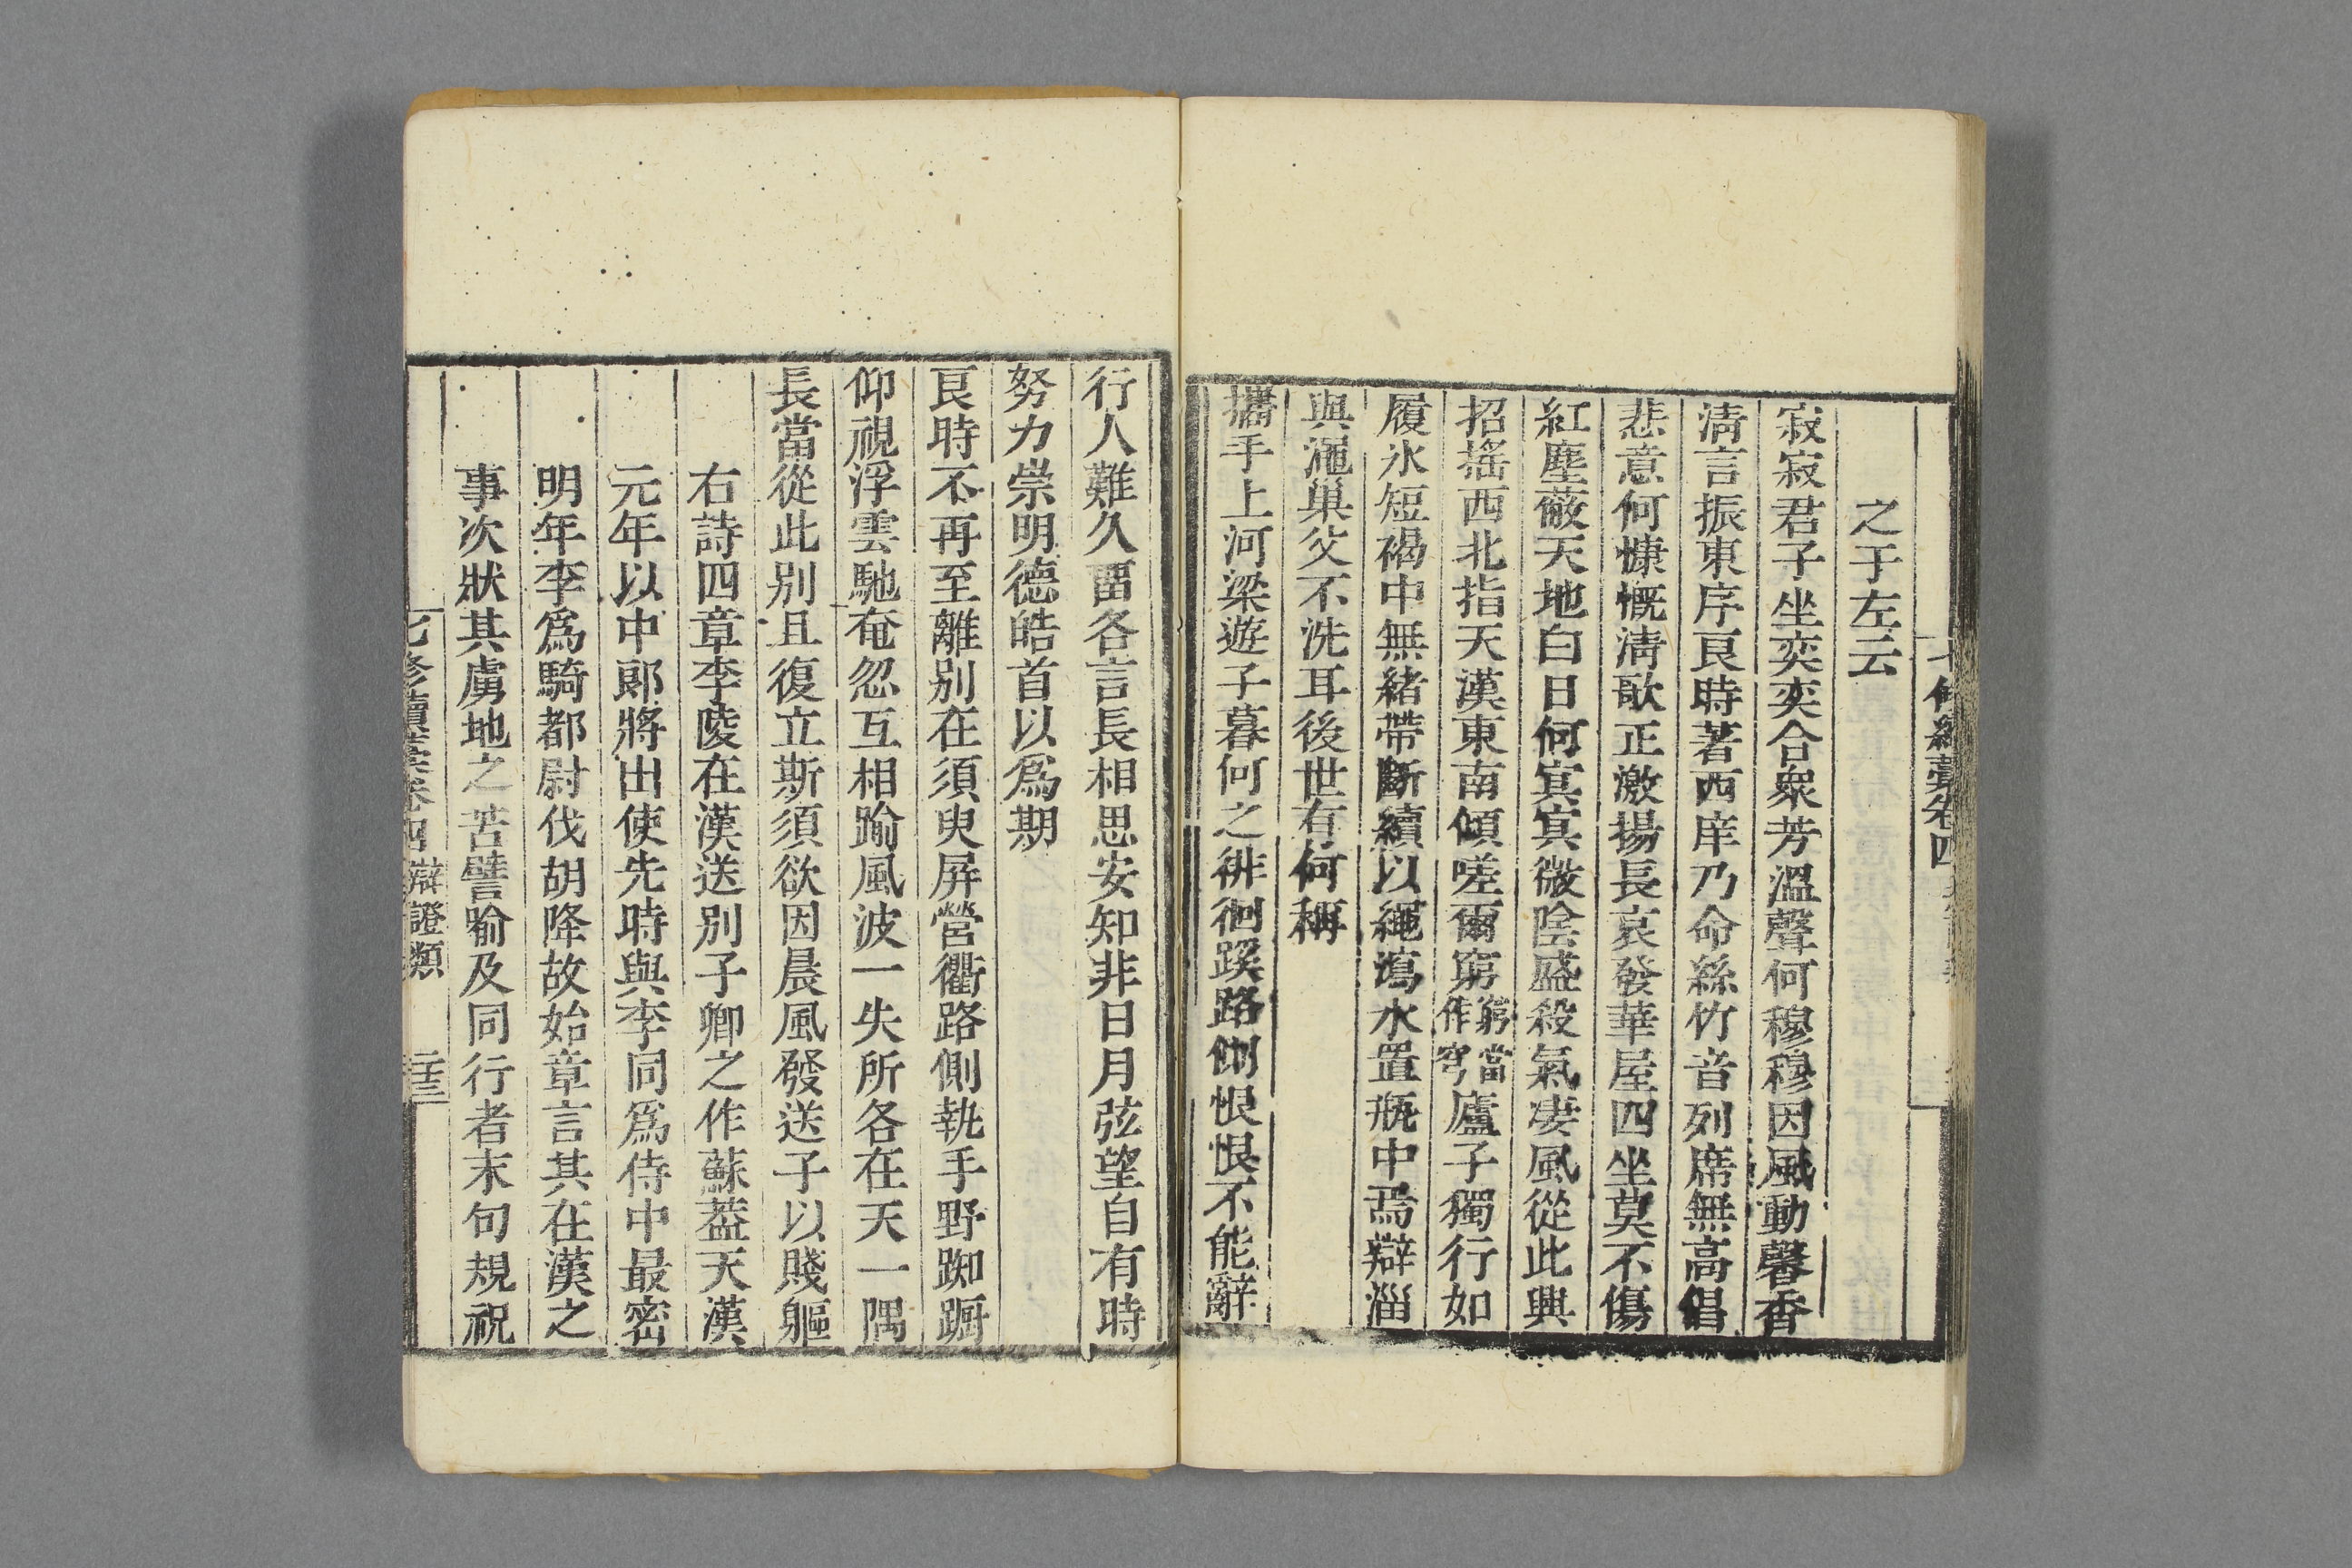 之于左云
寂寂君子坐奕奕合衆芳溫聲何穆穆因風動馨香
淸言振東序良時著西庠乃命絲竹音列席無高倡
悲意何慷慨淸歌正激揚長哀發華屋四坐莫不傷
紅塵蔽天地白日何寘寘微陰盛殺氣凄風從此興
招搖西北指天漢東南傾嗟爾窮窮當作穹廬子獨行如
履氷短褐中無緒帶斷續以繩瀉水置瓶中焉辯淄
與澠巢父不洗耳後世有何稱
攜手上河梁遊子暮何之徘徊蹊路側恨恨不能辭
行人難久畱各言長相思安知非日月弦望自有時
努力崇明德皓首以爲期
良時不再至離別在須臾屏營衢路側執手野踟蹰
仰視浮雲馳奄忽互相踰風波一失所各在天一隅
長當從此別且復立斯須欲因晨風發送子以賤軀
右詩四章李陵在漢送別子卿之作蘇葢天漢
元年以中郞將出使先時與李同爲侍中最密
明年李爲騎都尉伐胡降故始章言其在漢之
事次狀其虜地之苦譬喻及同行者末句規祝
七修續藁卷四 辯證類 二十三